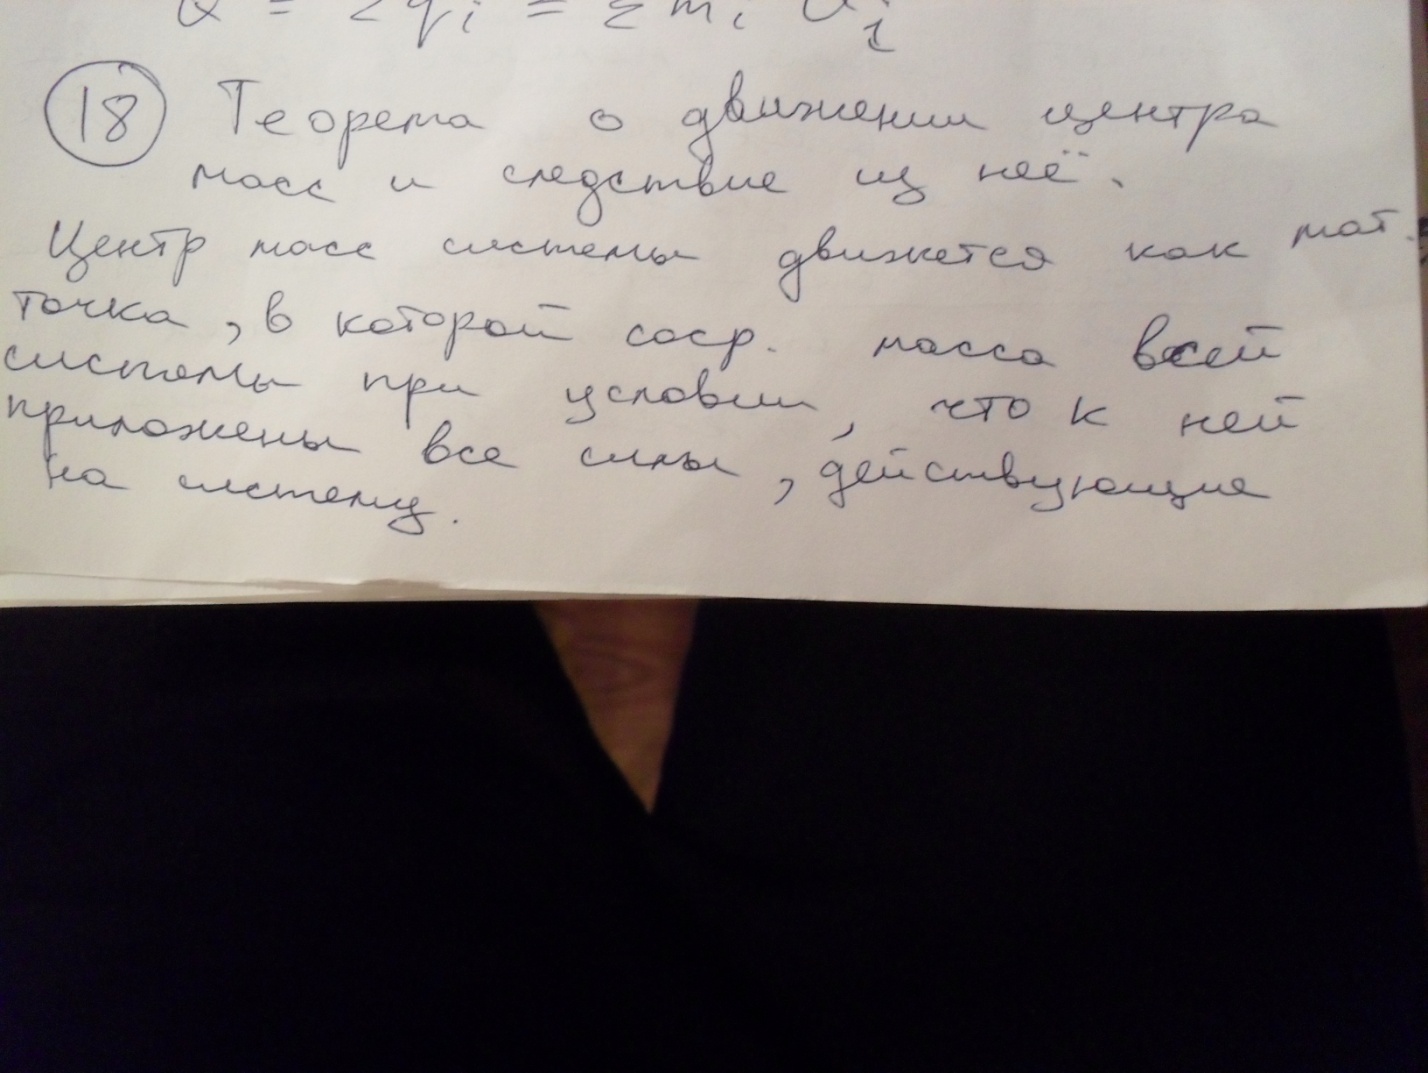 Q = Σqi = Σmi Ui
18 Теорема о движении центра
масс и следствие из неё.
Центр масс системы движется как мат.
точка, в которой соср. масса всей
системы при условии, что к ней
приложены все силы, действующие
на систему.